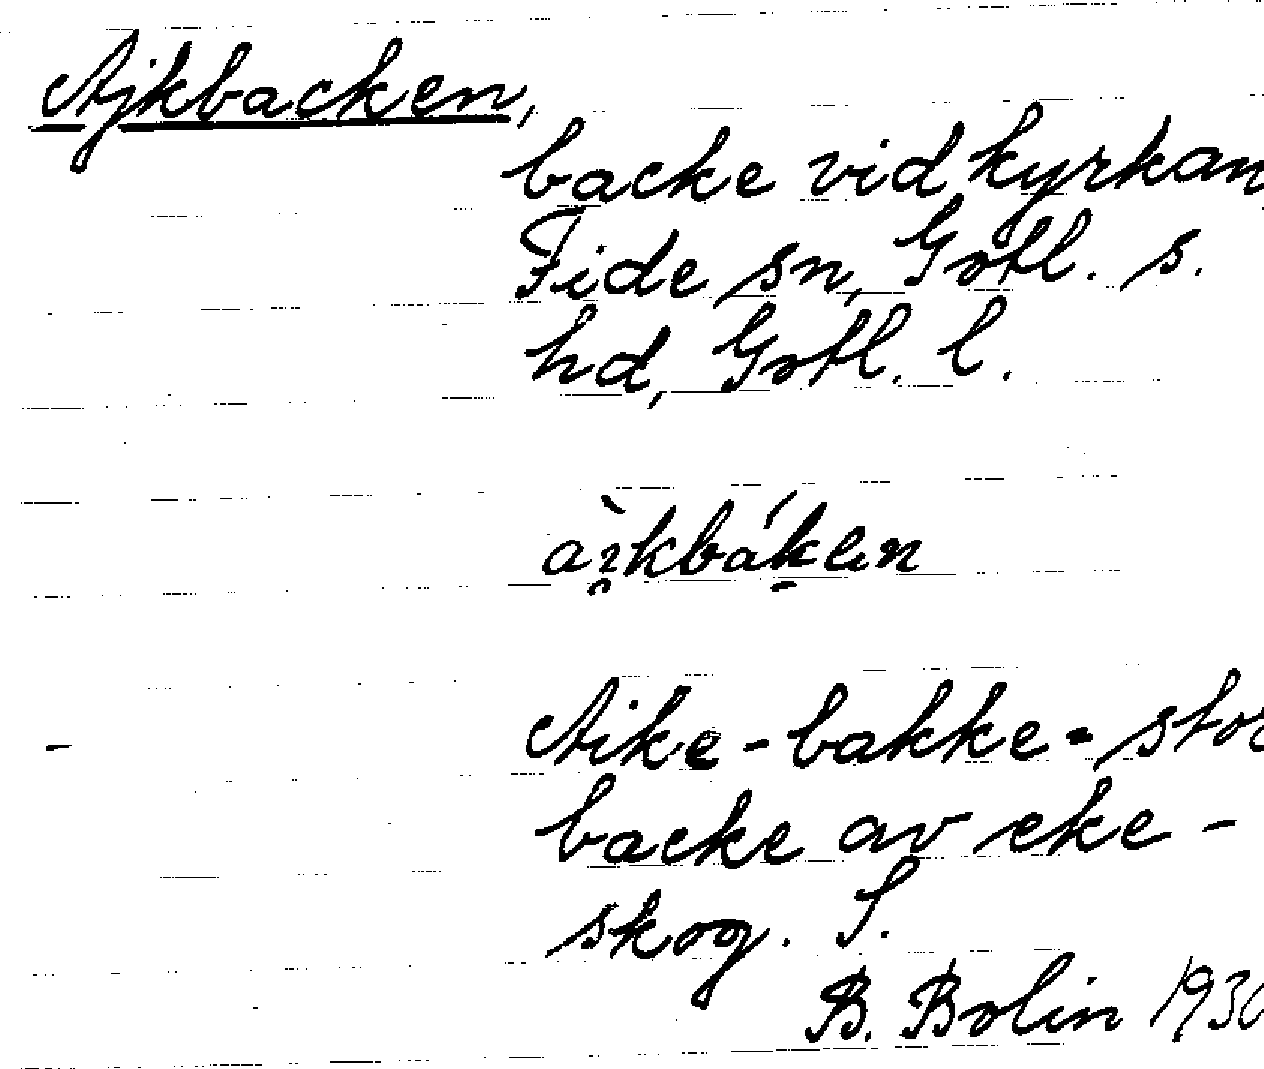 Ajkbacken,
backe vid kyrkan,
Fide sn, Gotl. s.
hd, Gotl. l.
àı̯kbák̠en
- Aike-bakke = stor
backe av eke-
skog. S.
B. Bolin 193